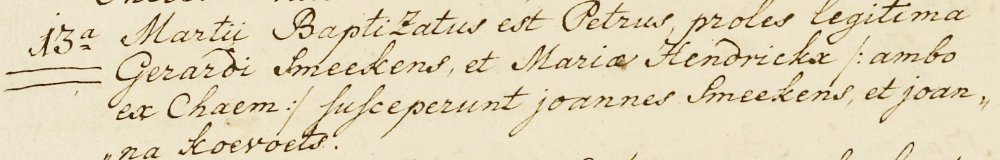 13ª Martii Baptizatus est Petrus, proles legitima
Gerardi Smeekens, et Mariæ Hendrickx /: ambo
ex Chaem :/ susceperunt joannes Smeekens, et joan„
„na Koevoets.